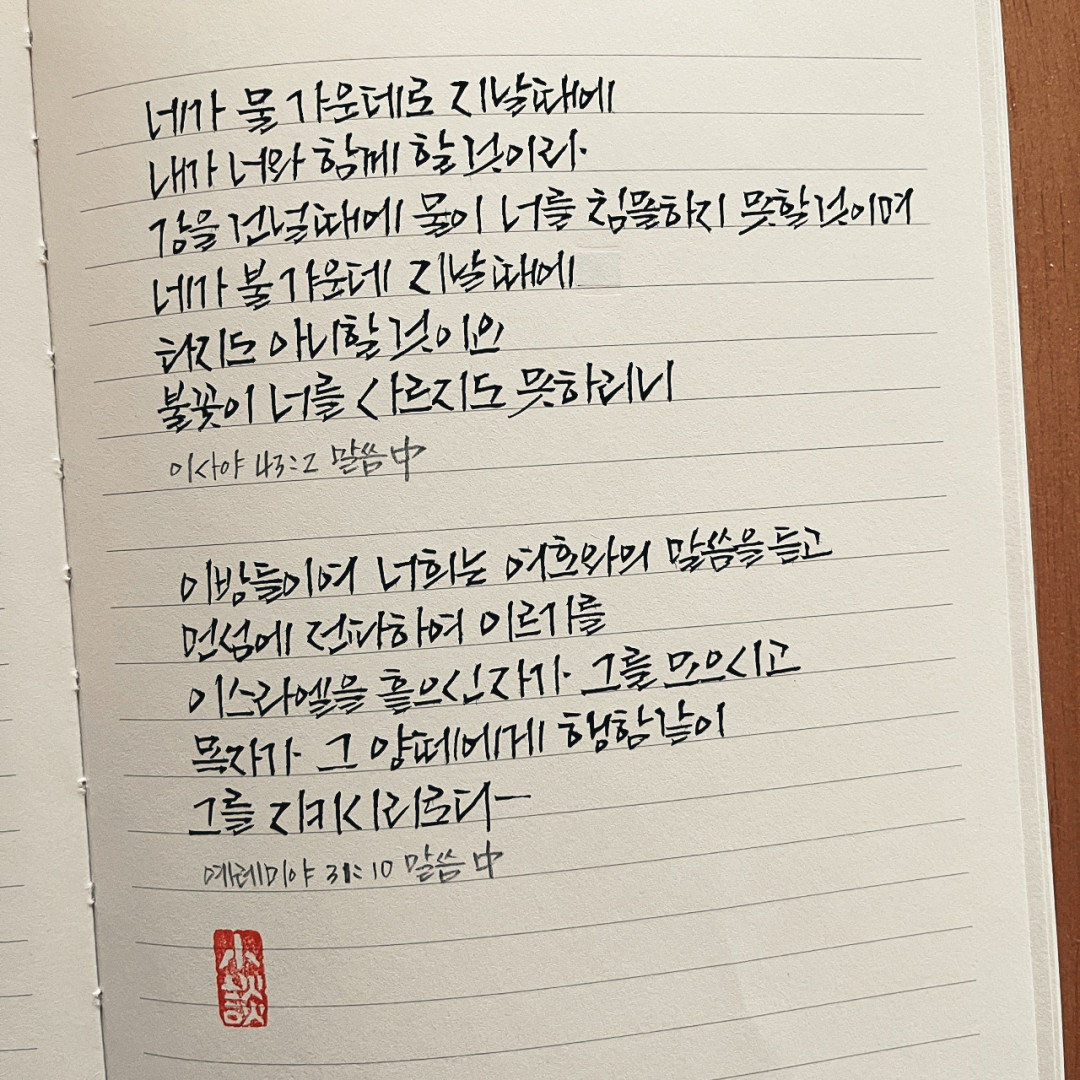 네가 물 가운데로 지날때에
내가 너와 함께 할것이라.
강을 건널때에 물이 너를 침몰하지 못할것이며
네가 불 가운데 지날때에
타지도 아니할것이요
불꽃이 너를 사르지도 못하리니
이사야 43:2 말씀中
이방들이여 너희는 여호와의 말씀을 듣고
먼섬에 전파하여 이르기를
이스라엘을 흩으신자가 그를 모으시고
목자가 그 양떼에게 행함같이
그를 지키시리로다
예레미야 31:10 말씀中
小談